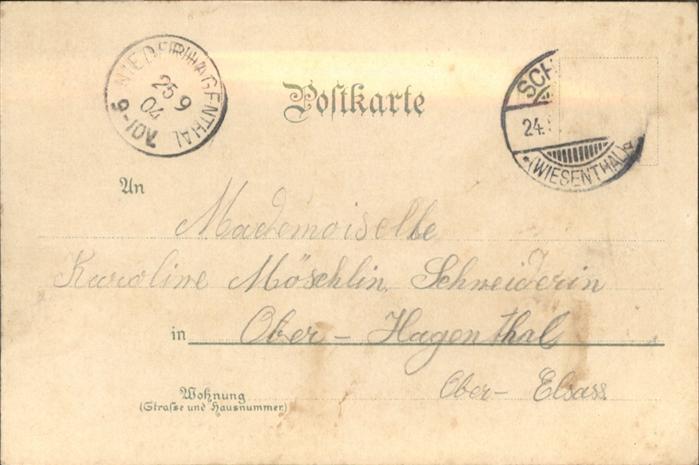 NIEDERHAGENTHAL
25 9
04
9-10V
Postkarte
SCH
24.
*(WIESENTHAL)*
An
Mademoiselle
Karoline Möschlin, Schneiderin
in Ober-Hagenthal
Ober-Elsass
Wohnung
(Straße und Hausnummer)